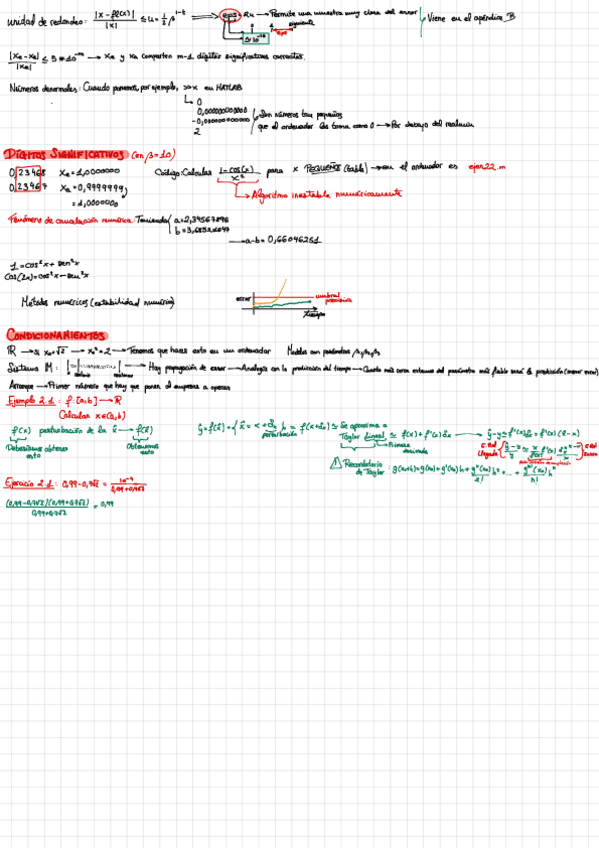 unidad de redondeo: |x - fl(x)| / |x| ≤ u = 1/2 β^(1-t) ⟹ eps = 2u → Permite una muestra muy clara del error
siguiente
Viene en el apéndice B
|xₑ - xₐ| / |xₑ| ≤ 5 * 10^(-m) → xₑ y xₐ comparten m-1 dígitos significativos correctos.
Números denormales: Cuando ponemos, por ejemplo, >>x en MATLAB
0
0,000000000000
-0,000000000000
2
Son números tan pequeños
que el ordenador los toma como 0 → Por debajo del realmin
DÍGITOS SIGNIFICATIVOS (en β=10)
0,23468 xₑ = 1,0000000
0,23467 xₐ = 0,9999999
= 1,0000000
Código: Calcular (1-cos(x)) / x² para x PEQUEÑOS (tabla) → en el ordenador es ejan22.m
→ Algoritmo inestable numéricamente
Fenómeno de cancelación numérica. Teniendo a = 2,34567898
→ a-b = 0,66046251
1 = cos²x + sen²x
cos(2x) = cos²x - sen²x
Métodos numéricos (estabilidad numérica)
error
umbral
tiempo
CONDICIONAMIENTOS
ℝ → si x₀ = √2 → x₀² = 2 → Tenemos que hacer esto en un ordenador Modelos con parámetros
Sistema M: → Hay propagación de error → Analogía con la predicción del tiempo →
Arranque → Primer número que hay que poner al empezar a operar
Ejemplo 2.1: f: [a,b] → ℝ
Calcular x∈(a,b)
f(x) perturbación de la x̂ → f(x̂)
Deberíamos obtener
esto
Obtenemos
esto
Se aproxima a
perturbación
Taylor lineal ≃ f(x) + f'(x)δx → ŷ - y ≃ f'(x)δx = f'(x)(x̂ - x)
Primera
derivada
Recordatorio
de Taylor: g(x+h) = g(x) + g'(x)h + g''(x)/2! h² + ... + gⁿ(x)/n! hⁿ
Ejercicio 2.1: 0,99 - 0,7√2 = 10^(-4) / (0,99 + 0,7√2)
(0,99 - 0,7√2)(0,99 + 0,7√2) / (0,99 + 0,7√2) = 0,99